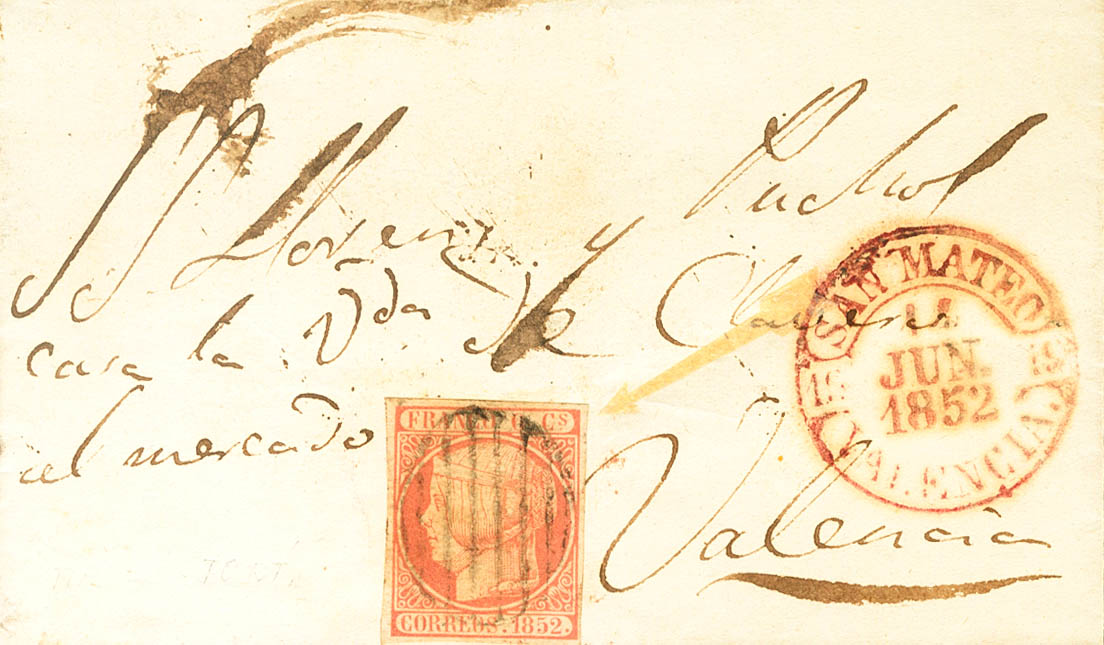 Llorens y Puchol
casa la Vda de Claveros
al mercado
Valencia
SAN MATEO
11
JUN.
1852
19 19
VALENCIA.
FRANCO 6 Cs
CORREOS. 1852.